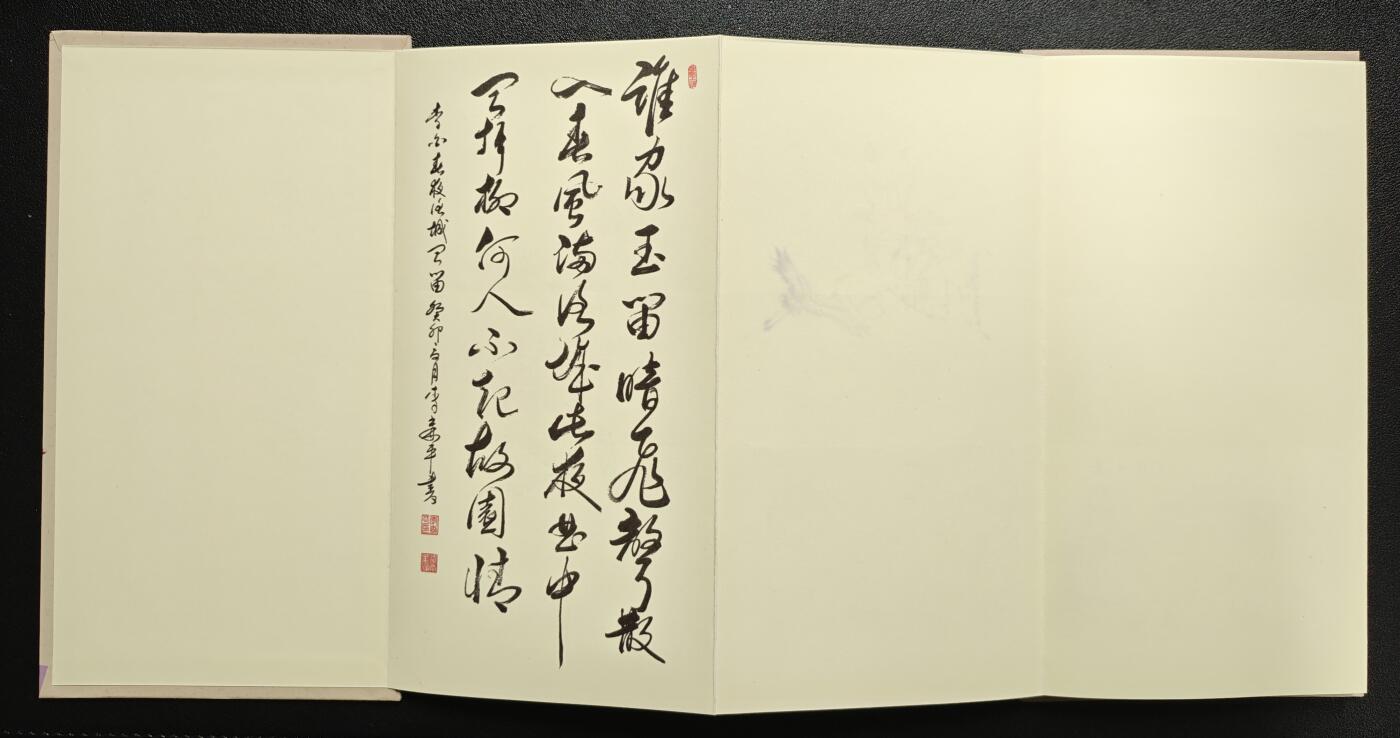 誰家玉笛暗飛聲散
入春風滿洛城此夜曲中
聞折柳何人不起故園情
李白春夜洛城聞笛 癸卯 月李 平書